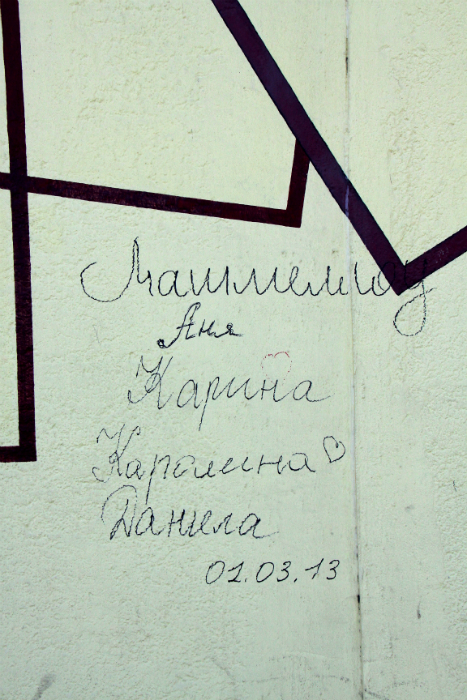 Машмемлоу
Аня
Карина
Каралина
Данила
01.03.13